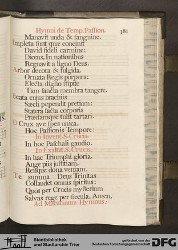 Hymni de Temp. Passion. 381
Manavit unda & sanguine.
Impleta sunt quæ concinit
David fideli carmine:
Dicens: In nationibus
Regnavit a ligno Deus.
Arbor decora & fulgida,
Ornata Regis purpura:
Electa digno stipite
Tam sancta membra tangere.
Beata cuius brachiis
Sæcli pependit pretium:
Statera facta corporis
Prædamque tulit tartari.
O Crux ave spes unica,
Hoc Passionis Tempore:
In Invent. S. Crucis.
In hoc Paschali gaudio.
In Exaltat. S. Crucis.
In hac Triumphi gloria.
Auge piis justitiam,
Reisque dona veniam.
Te summa Deus Trinitas
Collaudet omnis spiritus:
Quos per Crucis mysterium
Salvas rege per sæcula. Amen.
Ad Matutinum Hymnus.
Stiftsbibliothek
DFG